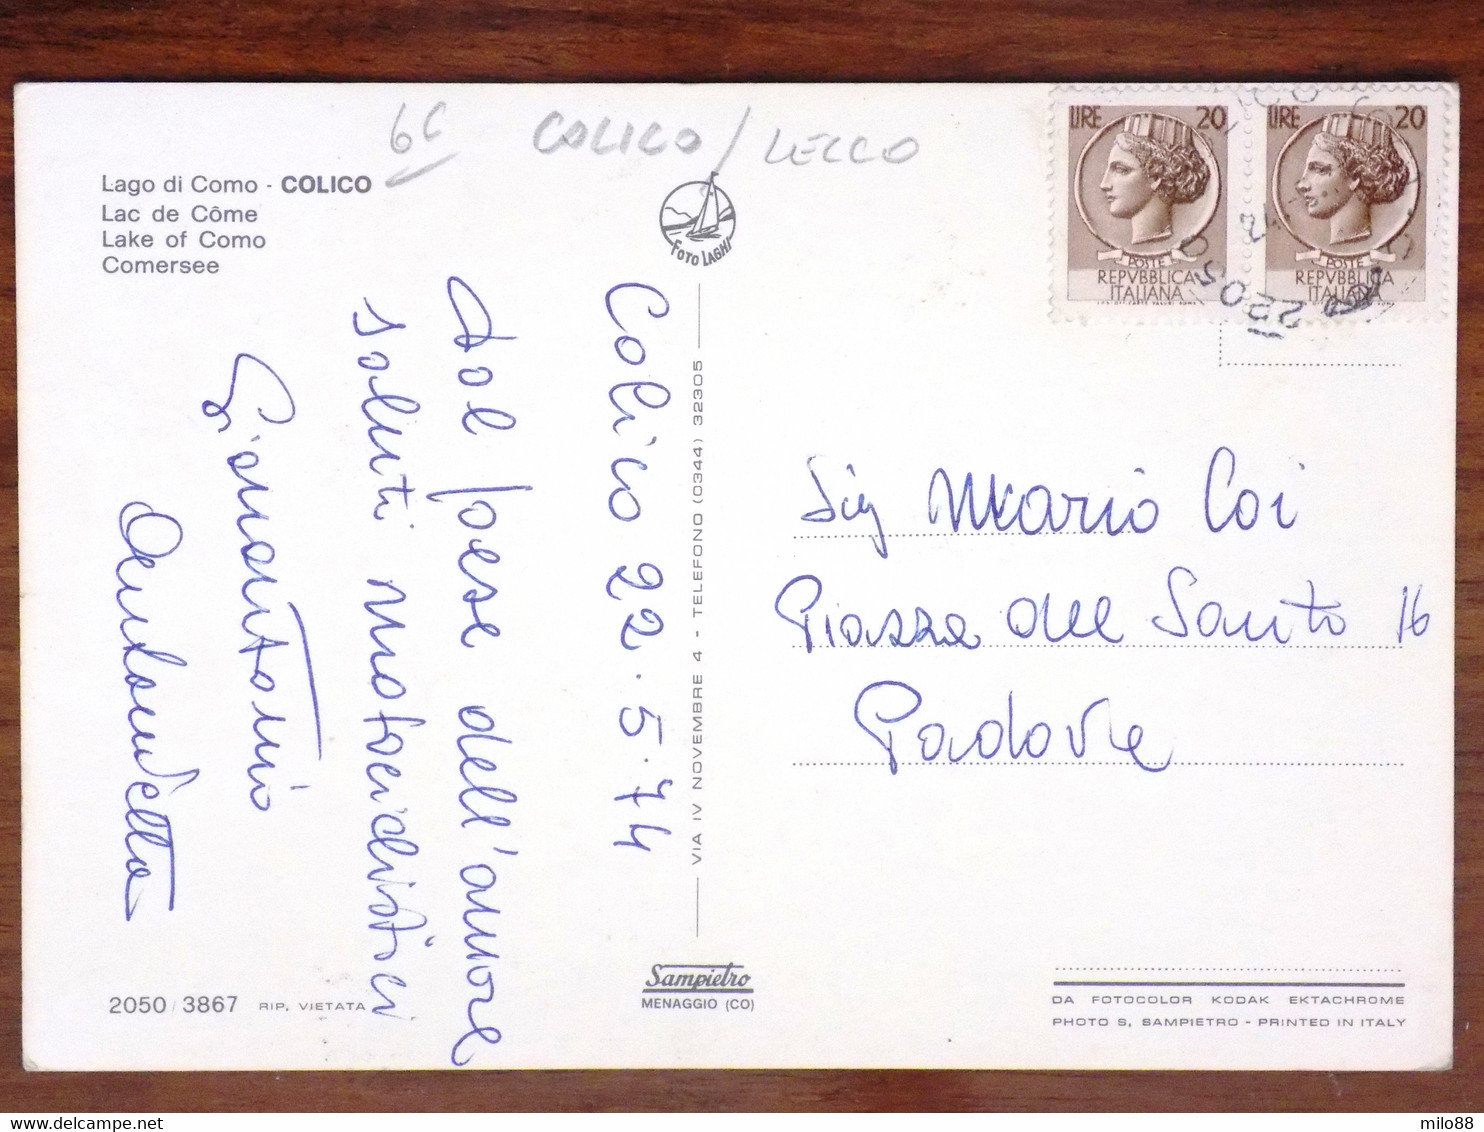 6C COLICO / LECCO
Lago di Como - COLICO
Lac de Côme
Lake of Como
Comersee
FOTO LAGHI
LIRE 20
POSTE
REPVBBLICA
ITALIANA
LIRE 20
POSTE
REPVBBLICA
ITALIANA
22050
Colico 22.5.74
dal paese dell'amore
saluti motociclistici
Gianantonio
Antonietta
VIA IV NOVEMBRE 4 - TELEFONO (0344) 32305
Sig Mario Coi
Piazza del Santo 16
Padova
Sampietro
MENAGGIO (CO)
2050/3867 RIP. VIETATA
DA FOTOCOLOR KODAK EKTACHROME
PHOTO S. SAMPIETRO - PRINTED IN ITALY
milo88